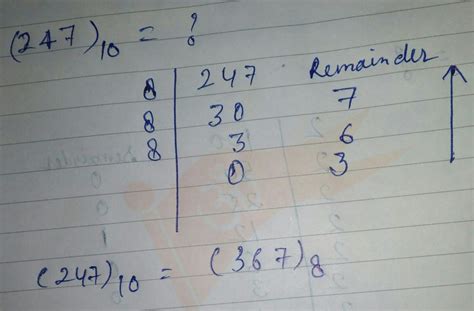 (247)₁₀ = ?
8 | 247 Remainder
8 | 30 7
8 | 3 6
0 3
(247)₁₀ = (367)₈